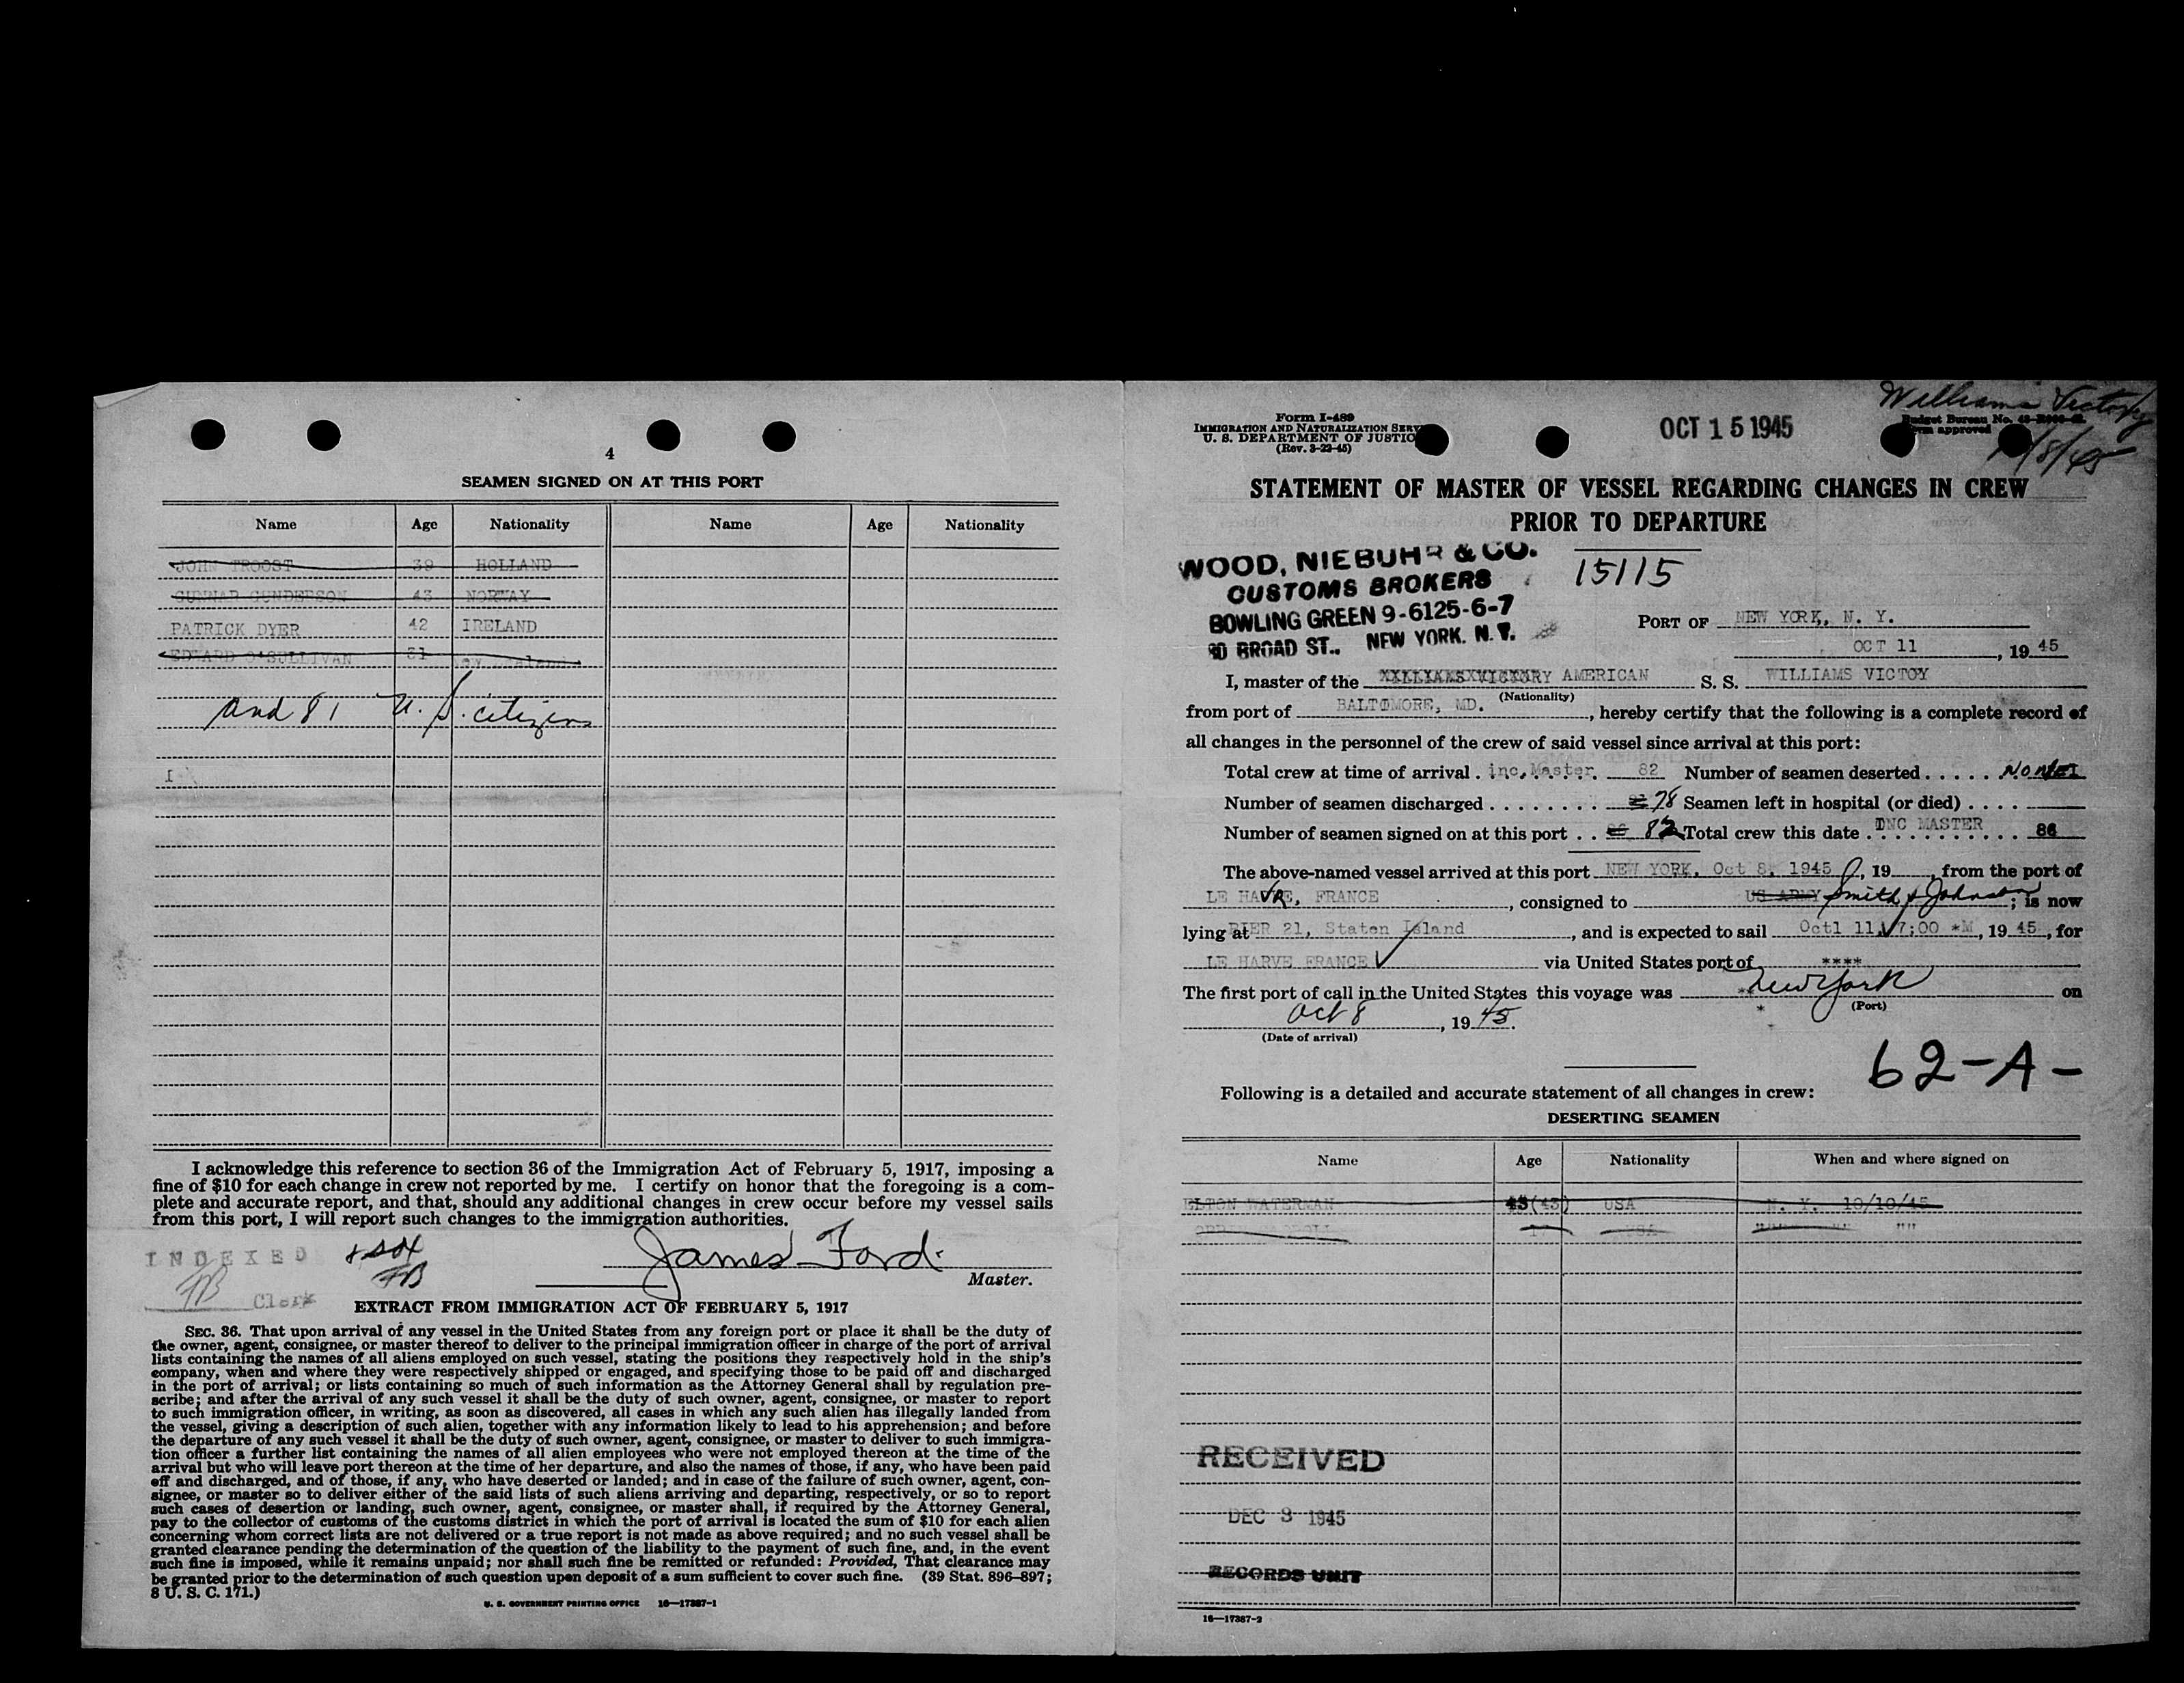 4
SEAMEN SIGNED ON AT THIS PORT
Name Age Nationality Name Age Nationality
JOHN TROOST 39 HOLLAND
GUNNAR GUNDERSON 43 NORWAY
PATRICK DYER 42 IRELAND
EDWARD O'SULLIVAN 31 New Zealand
and 81 U. S. citizens
I
I acknowledge this reference to section 36 of the Immigration Act of February 5, 1917, imposing a
fine of $10 for each change in crew not reported by me. I certify on honor that the foregoing is a com-
plete and accurate report, and that, should any additional changes in crew occur before my vessel sails
from this port, I will report such changes to the immigration authorities.
INDEXED
FB
FB Clerk
James Ford
Master.
EXTRACT FROM IMMIGRATION ACT OF FEBRUARY 5, 1917
SEC. 36. That upon arrival of any vessel in the United States from any foreign port or place it shall be the duty of
the owner, agent, consignee, or master thereof to deliver to the principal immigration officer in charge of the port of arrival
lists containing the names of all aliens employed on such vessel, stating the positions they respectively hold in the ship's
company, when and where they were respectively shipped or engaged, and specifying those to be paid off and discharged
in the port of arrival; or lists containing so much of such information as the Attorney General shall by regulation pre-
scribe; and after the arrival of any such vessel it shall be the duty of such owner, agent, consignee, or master to report
to such immigration officer, in writing, as soon as discovered, all cases in which any such alien has illegally landed from
the vessel, giving a description of such alien, together with any information likely to lead to his apprehension; and before
the departure of any such vessel it shall be the duty of such owner, agent, consignee, or master to deliver to such immigra-
tion officer a further list containing the names of all alien employees who were not employed thereon at the time of the
arrival but who will leave port thereon at the time of her departure, and also the names of those, if any, who have been paid
off and discharged, and of those, if any, who have deserted or landed; and in case of the failure of such owner, agent, con-
signee, or master so to deliver either of the said lists of such aliens arriving and departing, respectively, or so to report
such cases of desertion or landing, such owner, agent, consignee, or master shall, if required by the Attorney General,
pay to the collector of customs of the customs district in which the port of arrival is located the sum of $10 for each alien
concerning whom correct lists are not delivered or a true report is not made as above required; and no such vessel shall be
granted clearance pending the determination of the question of the liability to the payment of such fine, and, in the event
such fine is imposed, while it remains unpaid; nor shall such fine be remitted or refunded: Provided, That clearance may
be granted prior to the determination of such question upon deposit of a sum sufficient to cover such fine. (39 Stat. 896-897;
8 U. S. C. 171.)
U. S. GOVERNMENT PRINTING OFFICE 16—17387-1
Williams Victory
Form I-489
IMMIGRATION AND NATURALIZATION SERV
U. S. DEPARTMENT OF JUSTIC
(Rev. 3-22-45)
OCT 15 1945
Budget Bureau No.
approved
/8/45
STATEMENT OF MASTER OF VESSEL REGARDING CHANGES IN CREW
PRIOR TO DEPARTURE
WOOD, NIEBUHR & CO.
CUSTOMS BROKERS
BOWLING GREEN 9-6125-6-7
BROAD ST., NEW YORK. N. Y.
15115
PORT OF NEW YORK, N. Y.
OCT 11, 19 45
I, master of the AMERICAN S. S. WILLIAMS VICTOY
(Nationality)
from port of BALTOMORE, MD., hereby certify that the following is a complete record of
all changes in the personnel of the crew of said vessel since arrival at this port:
Total crew at time of arrival . inc. Master. 82 Number of seamen deserted . . . . . NONE
Number of seamen discharged . . . . . . . . 78 Seamen left in hospital (or died) . . . .
Number of seamen signed on at this port . . 82 Total crew this date . INC MASTER 86
The above-named vessel arrived at this port NEW YORK, Oct 8, 1945, 19 , from the port of
LE HAVRE, FRANCE, consigned to US ARMY Smith & Johnson; is now
lying at PIER 21, Staten Island, and is expected to sail Octl 11, 7:00 *M, 19 45, for
LE HARVE FRANCE via United States port of ****
The first port of call in the United States this voyage was New York on
(Port)
Oct 8, 19 45.
(Date of arrival)
62-A-
Following is a detailed and accurate statement of all changes in crew:
DESERTING SEAMEN
Name Age Nationality When and where signed on
ELTON WATERMAN 43(43) USA N. Y. 10/10/45
17 USA "" "" ""
RECEIVED
DEC 3 1945
RECORDS UNIT
16—17387-2